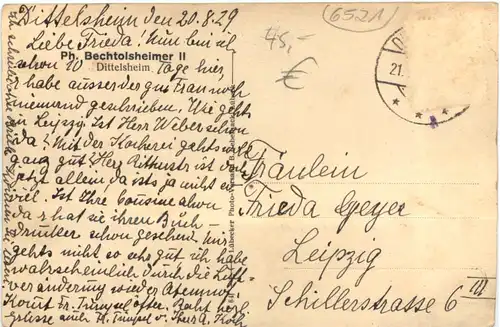 Dittelsheim den 20.8.29
Liebe Frieda! Nun bin ich
schon 10 Tage hier,
Ph. Bechtolsheimer II
Dittelsheim
habe ausser der gut Frau noch
niemand geschrieben. Wie gehts
in Leipzig. Ist Herr Weber schon
da? Mit der Kocherei gehts wohl
ganz gut? Herr Ritter ist doch
jetzt allein, da ists ja nicht so
viel. Ist Ihre Cousine schon
da & hat sie ihren Buch-
drucker schon gesehen. Mir
gehts nicht so sehr gut ich habe
wahrscheinlich durch die Luft-
veränderung wieder Atemnot
Kommt Fr. Trümpel öfter. Recht herzl.
Grüsse auch H. Trümpel v. Ihrer A. Koch
(6521)
45,-
€
21.
Fräulein
Frieda Geyer
Leipzig
Schillerstrasse 6 III